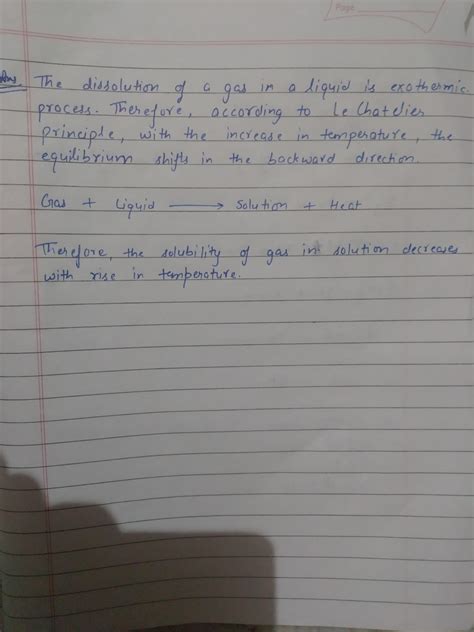 Page
Ans The dissolution of a gas in a liquid is exothermic
process. Therefore, according to Le Chatelier
principle, with the increase in temperature, the
equilibrium shifts in the backward direction.
Gas + Liquid ⟶ Solution + Heat
Therefore, the solubility of gas in solution decreases
with rise in temperature.